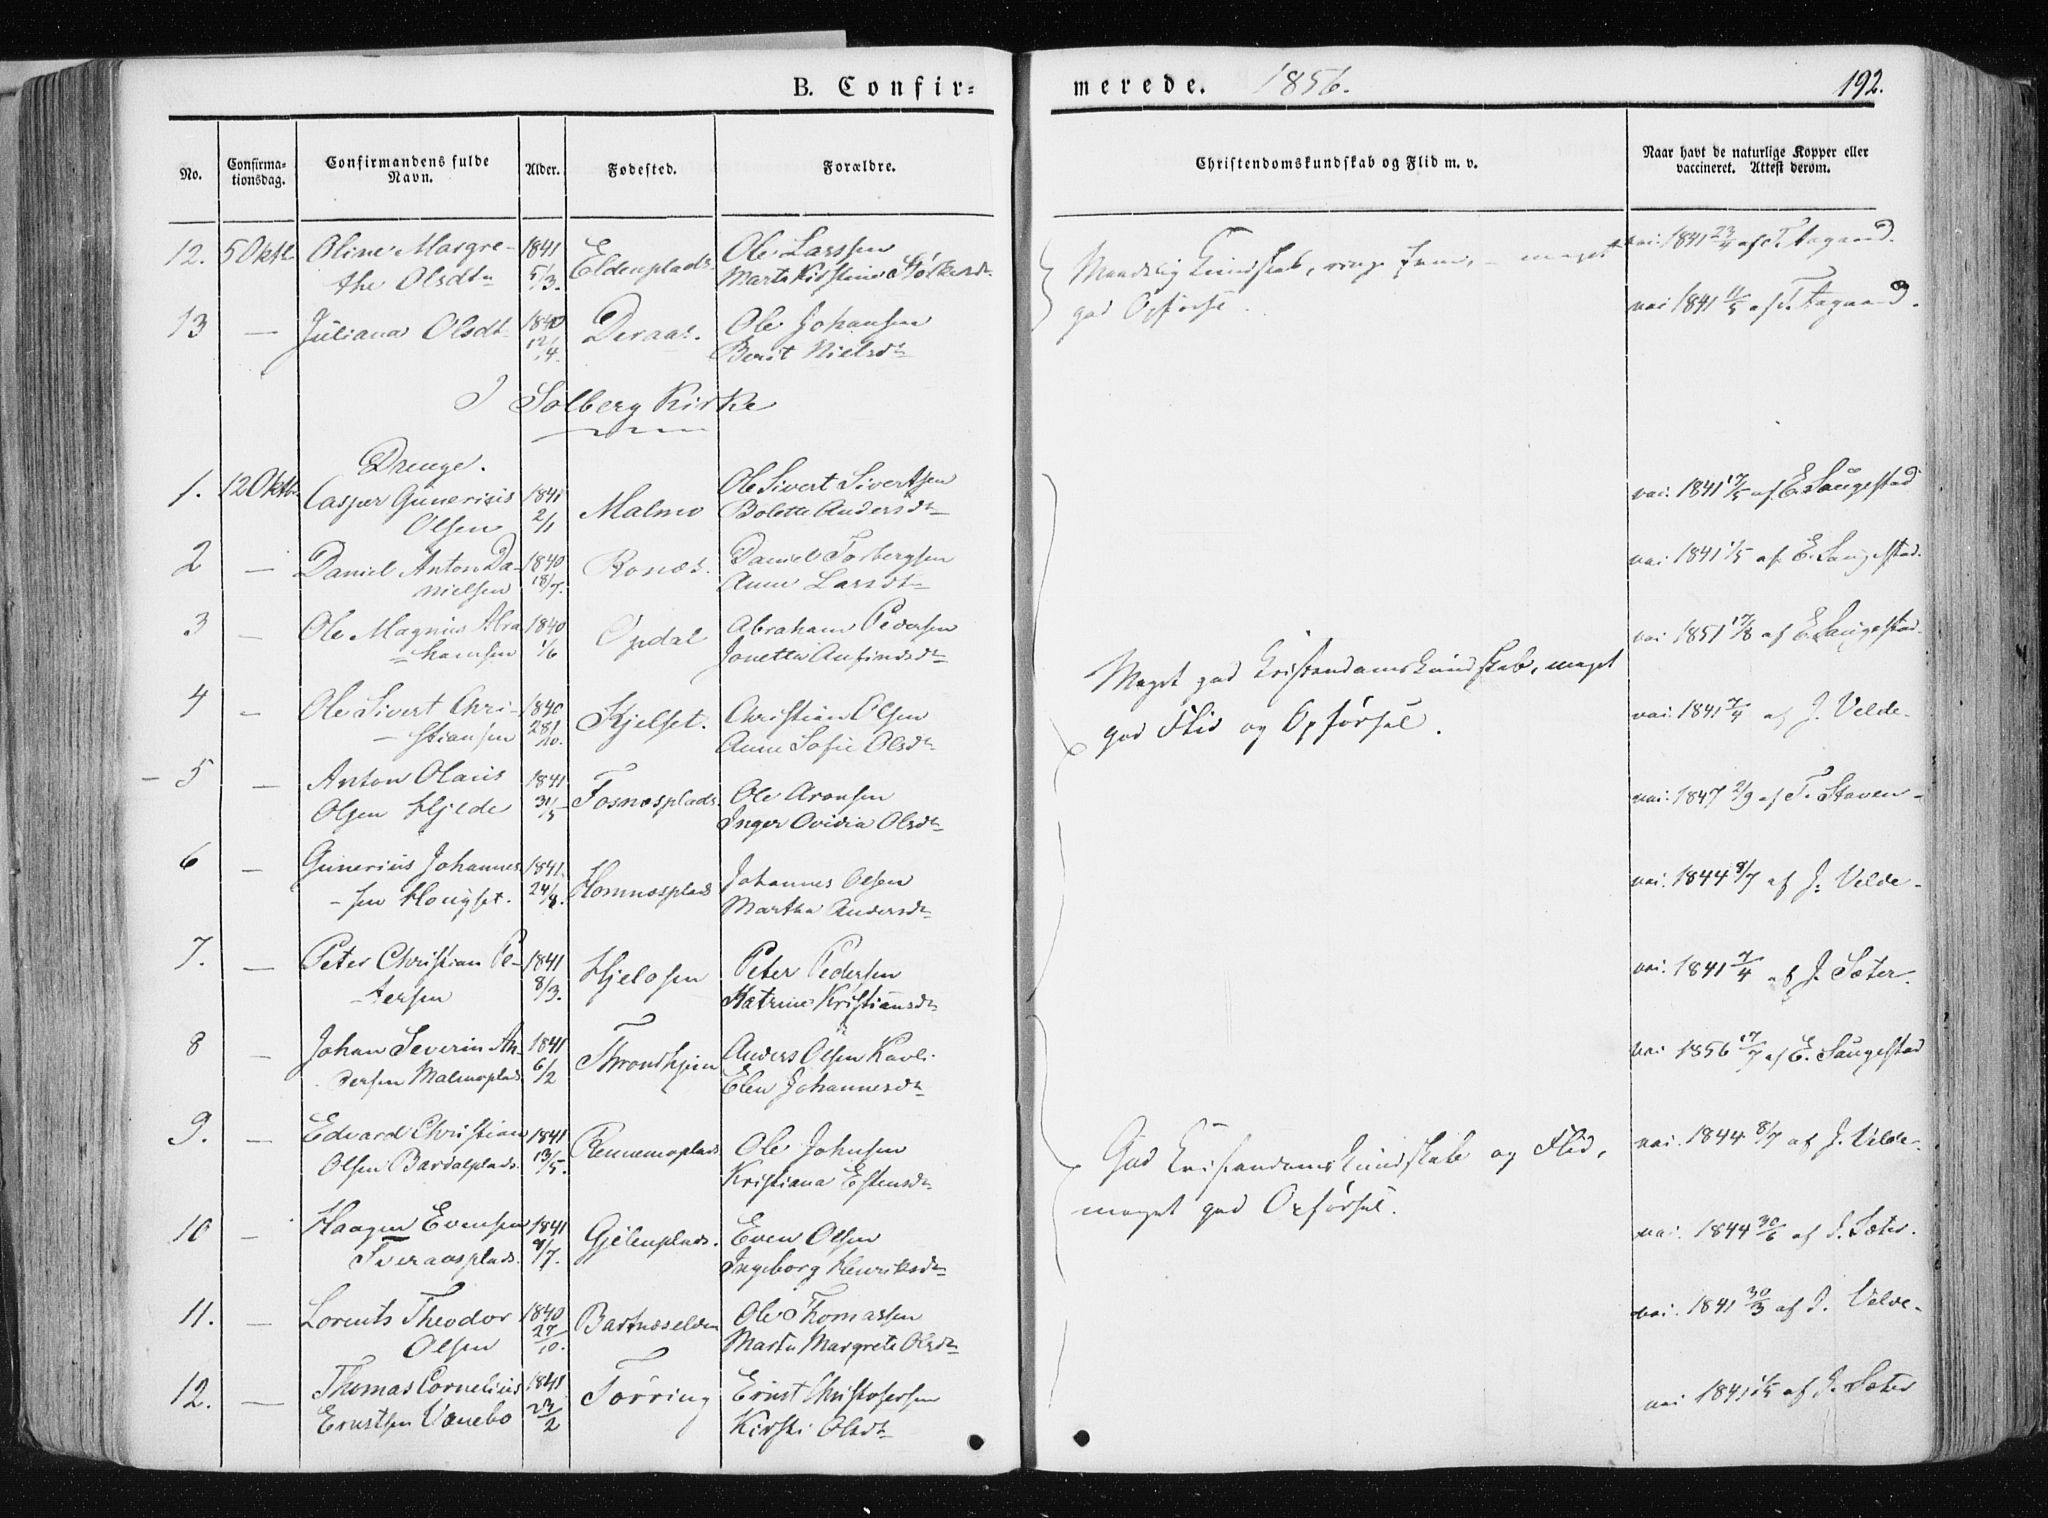 B. Confir= merede. 1856. 192.
No. Confirma-tionsdag. Confirmandens fulde Navn. Alder. Fødested. Forældre. Christendomskundskab og Flid m. v. Naar havt de naturlige Kopper eller vaccineret. Attest derom.
12. 5 Oktb. Oline Margre- 1841 Eldenplads. Ole Larssen
the Olsdtr 5/3. Marta Kirstine
Maadelig Kundskab, ringe meget
god Opførsel.
vac. 1841 23/4 af T. Aagaard.
13 — Juliana Olsdtr 1840 Deraas. Ole Johansen
12/4. Berit Nielsdtr
vac 1841 11/5 af T. Aagaard.
I Solberg Kirke
Drenge.
1. 12 Oktb. Casper Gunerius 1841 Malmo Ole Sivert Sivertsen
Olsen 2/1 Bolette Andersdtr
vac. 1841 17/5 af E. Saugestad
2 — Daniel Anton Da- 1840 Ronæs. Daniel Torbergsen
nielsen 18/7. Anne Larsdtr
vac. 1841 1/5 af E. Saugestad.
3 — Ole Magnus Abra 1840 Opdal Abraham Pedersen
=hamsen 1/6 Jonetta Anfindsdtr
vac. 1851 17/8 af E. Saugestad.
Meget god Kristendomskundskab, meget
god Flid og Opførsel.
4 — Ole Sivert Chri- 1840 Kjelset. Christian Olsen
-stiansen 28/10. Anne Sofie Olsdtr
vac. 1841 7/4 af J. Velde.
5 — Anton Olaus 1841 Fosnæsplads. Ole Aronsen
Olsen Hjelde 31/5 Inger Ovidia Olsdtr
vac. 1847 2/9 af T. Staven
6 — Gunerius Johannes 1841. Homnæsplads Johannes Olsen
-sen 24/8. Martha Andersdtr
vac. 1844 8/7 af J. Velde.
7. — Peter Christian Pe- 1841 Hjelosen Peter Pedersen
-dersen 8/3. Katrine Kristiansdtr
vac. 1841 7/4 af J. Sæter.
8 — Johan Severin An 1841 Throndhjem Anders Olsen Kavli.
dersen Malmoplads. 6/2 Elen Johannesdtr
vac 1856 17/7 af E. Saugestad
9. — Edvard Christian 1841 Rennemoplads Ole Johnsen
Olsen Bardalplads. 13/5. Kristiana Estensdtr
God Kristendomskundskab og Flid,
meget god Opførsel.
vac. 1844 8/7 af J. Velde.
10 — Haagen Evensen 1841 Gjelenplads. Even Olsen
Tveraasplads. 9/7. Ingeborg Henriksdtr
vac. 1844 30/6 af J. Sæter.
11. — Lorents Theodor 1840 Bartnæselden Ole Thomassen
Olsen 27/10. Marta Margrete Olsdtr
vac. 1841 30/3 af J. Velde.
12. — Thomas Cornelius 1841 Torring Ernst Christofersen
Ernstsen Vanebo 23/2 Kirsti Olsdtr
vac 1841 1/5 af J. Sæter